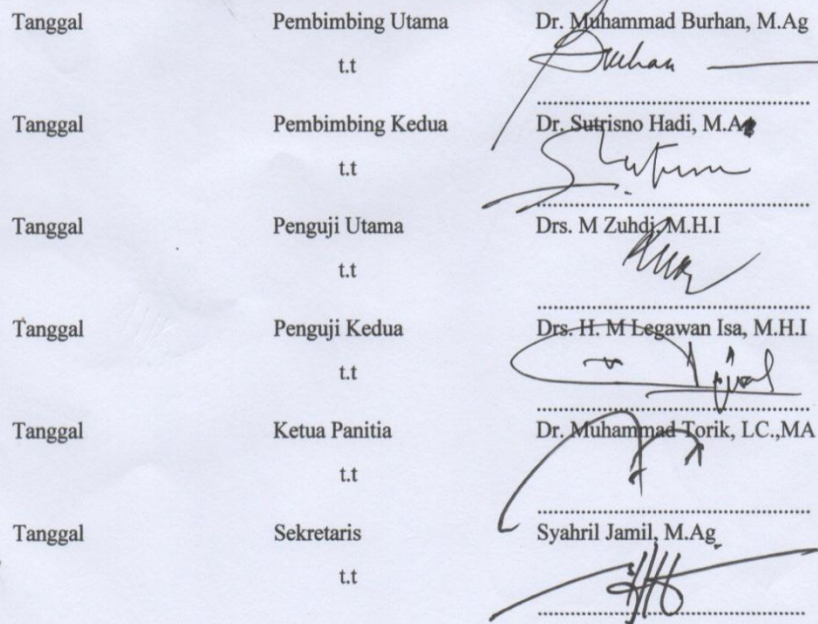 Tanggal Pembimbing Utama Dr. Muhammad Burhan, M.Ag
t.t
Tanggal Pembimbing Kedua Dr. Sutrisno Hadi, M.A
t.t
Tanggal Penguji Utama Drs. M Zuhdi, M.H.I
t.t
Tanggal Penguji Kedua Drs. H. M Legawan Isa, M.H.I
t.t
Tanggal Ketua Panitia Dr. Muhammad Torik, LC.,MA
t.t
Tanggal Sekretaris Syahril Jamil, M.Ag
t.t